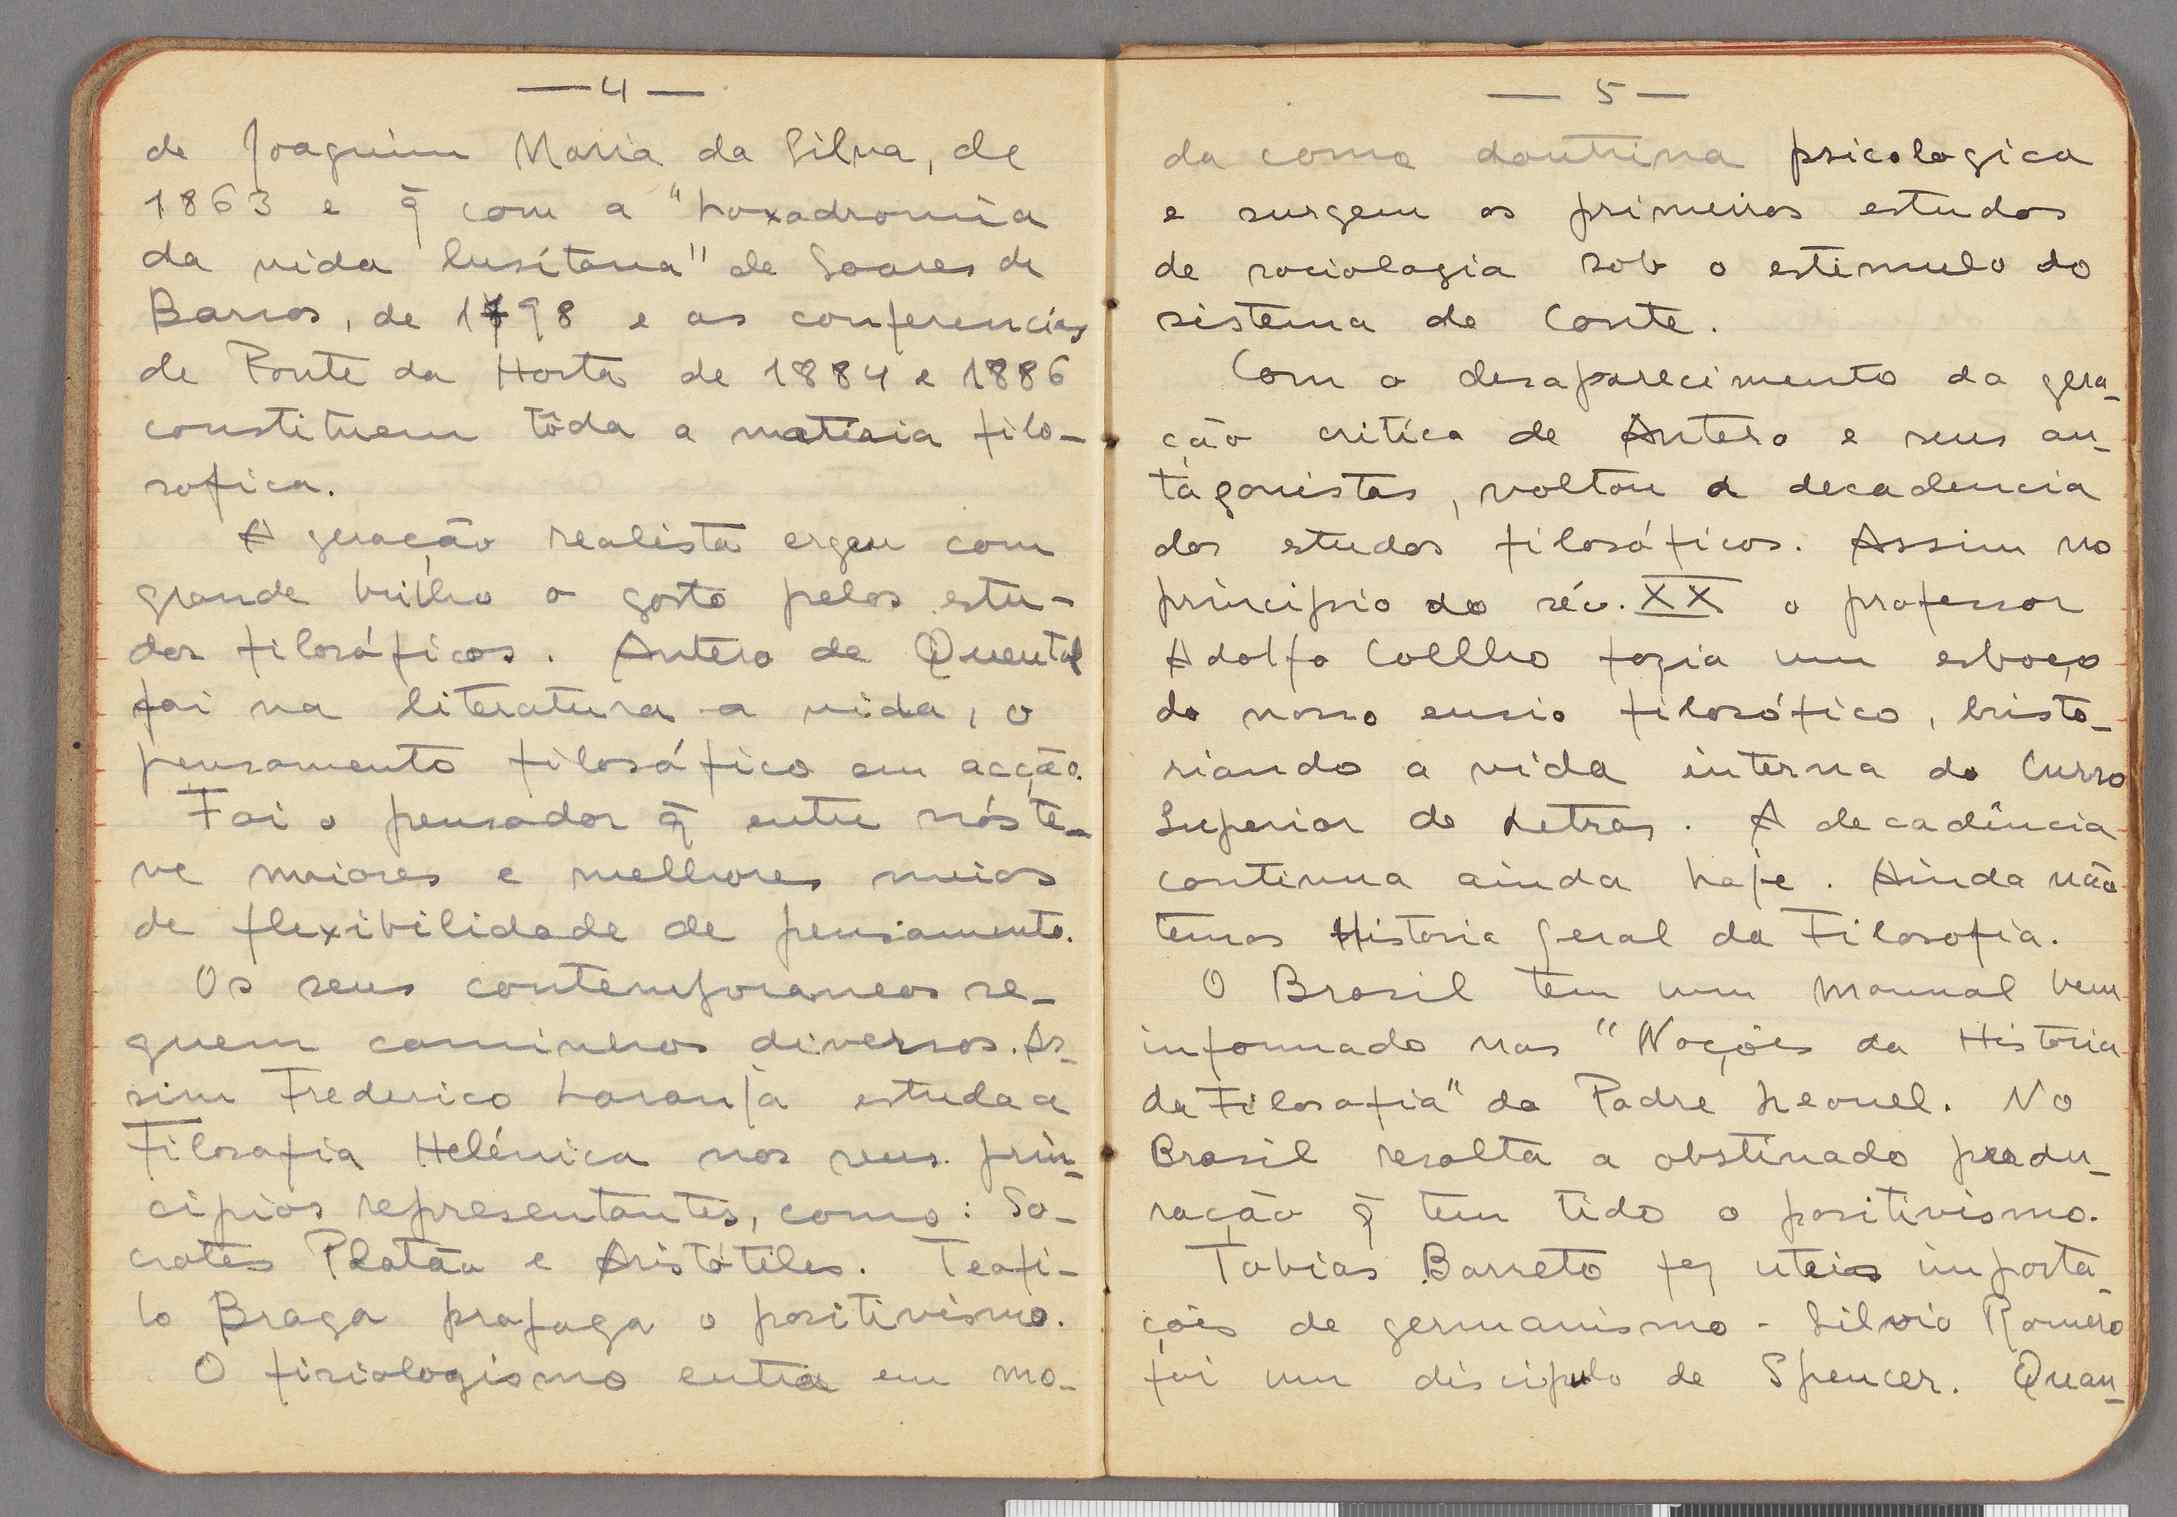 — 4 —
de Joaquim Maria da Silva, de
1863 e q̃ com a "Loxadromia
da vida lusitana" de Soares de
Barros, de 1798 e as conferencias
de Ponte da Horta de 1884 e 1886
constituem tôda a matéria filo-
sofica.
A geração realista ergeu com
grande brilho o gosto pelos estu-
dos filosóficos. Antero de Quental
foi na literatura a vida, o
pensamento filosófico em acção.
Foi o pensador q̃ entre nós te-
ve maiores e melhores meios
de flexibilidade de pensamento.
Os seus contemporaneos se-
guem caminhos diversos. As-
sim Frederico Laranja estuda a
Filosofia Helénica nos seus prin-
cipios representantes, como: So-
crates Platão e Aristóteles. Teofi-
lo Braga propaga o positivismo.
O fisiologismo entra em mo-
— 5 —
da como doutrina psicologica
e surgem os primeiros estudos
de sociologia sob o estimulo do
sistema de Conte.
Com o desaparecimento da gera-
ção critica de Antero e seus an-
tagonistas, voltou a decadencia
dos estudos filosóficos. Assim no
principio do séc. XX o professor
Adolfo Coelho fazia um esboço
do nosso ensio filosófico, histo-
riando a vida interna do Curso
Superior de Letras. A decadência
continua ainda hoje. Ainda não
temos Historia Geral da Filosofia.
O Brasil tem um Manual bem
informado nas "Noções da Historia
da Filosofia" do Padre Leonel. No
Brasil resalta a obstinado predu-
ração q̃ tem tido o positivismo.
Tobias Barreto fez uteis importa-
ções de germanismo - Silvio Romero
foi um discipulo de Spencer. Quan-